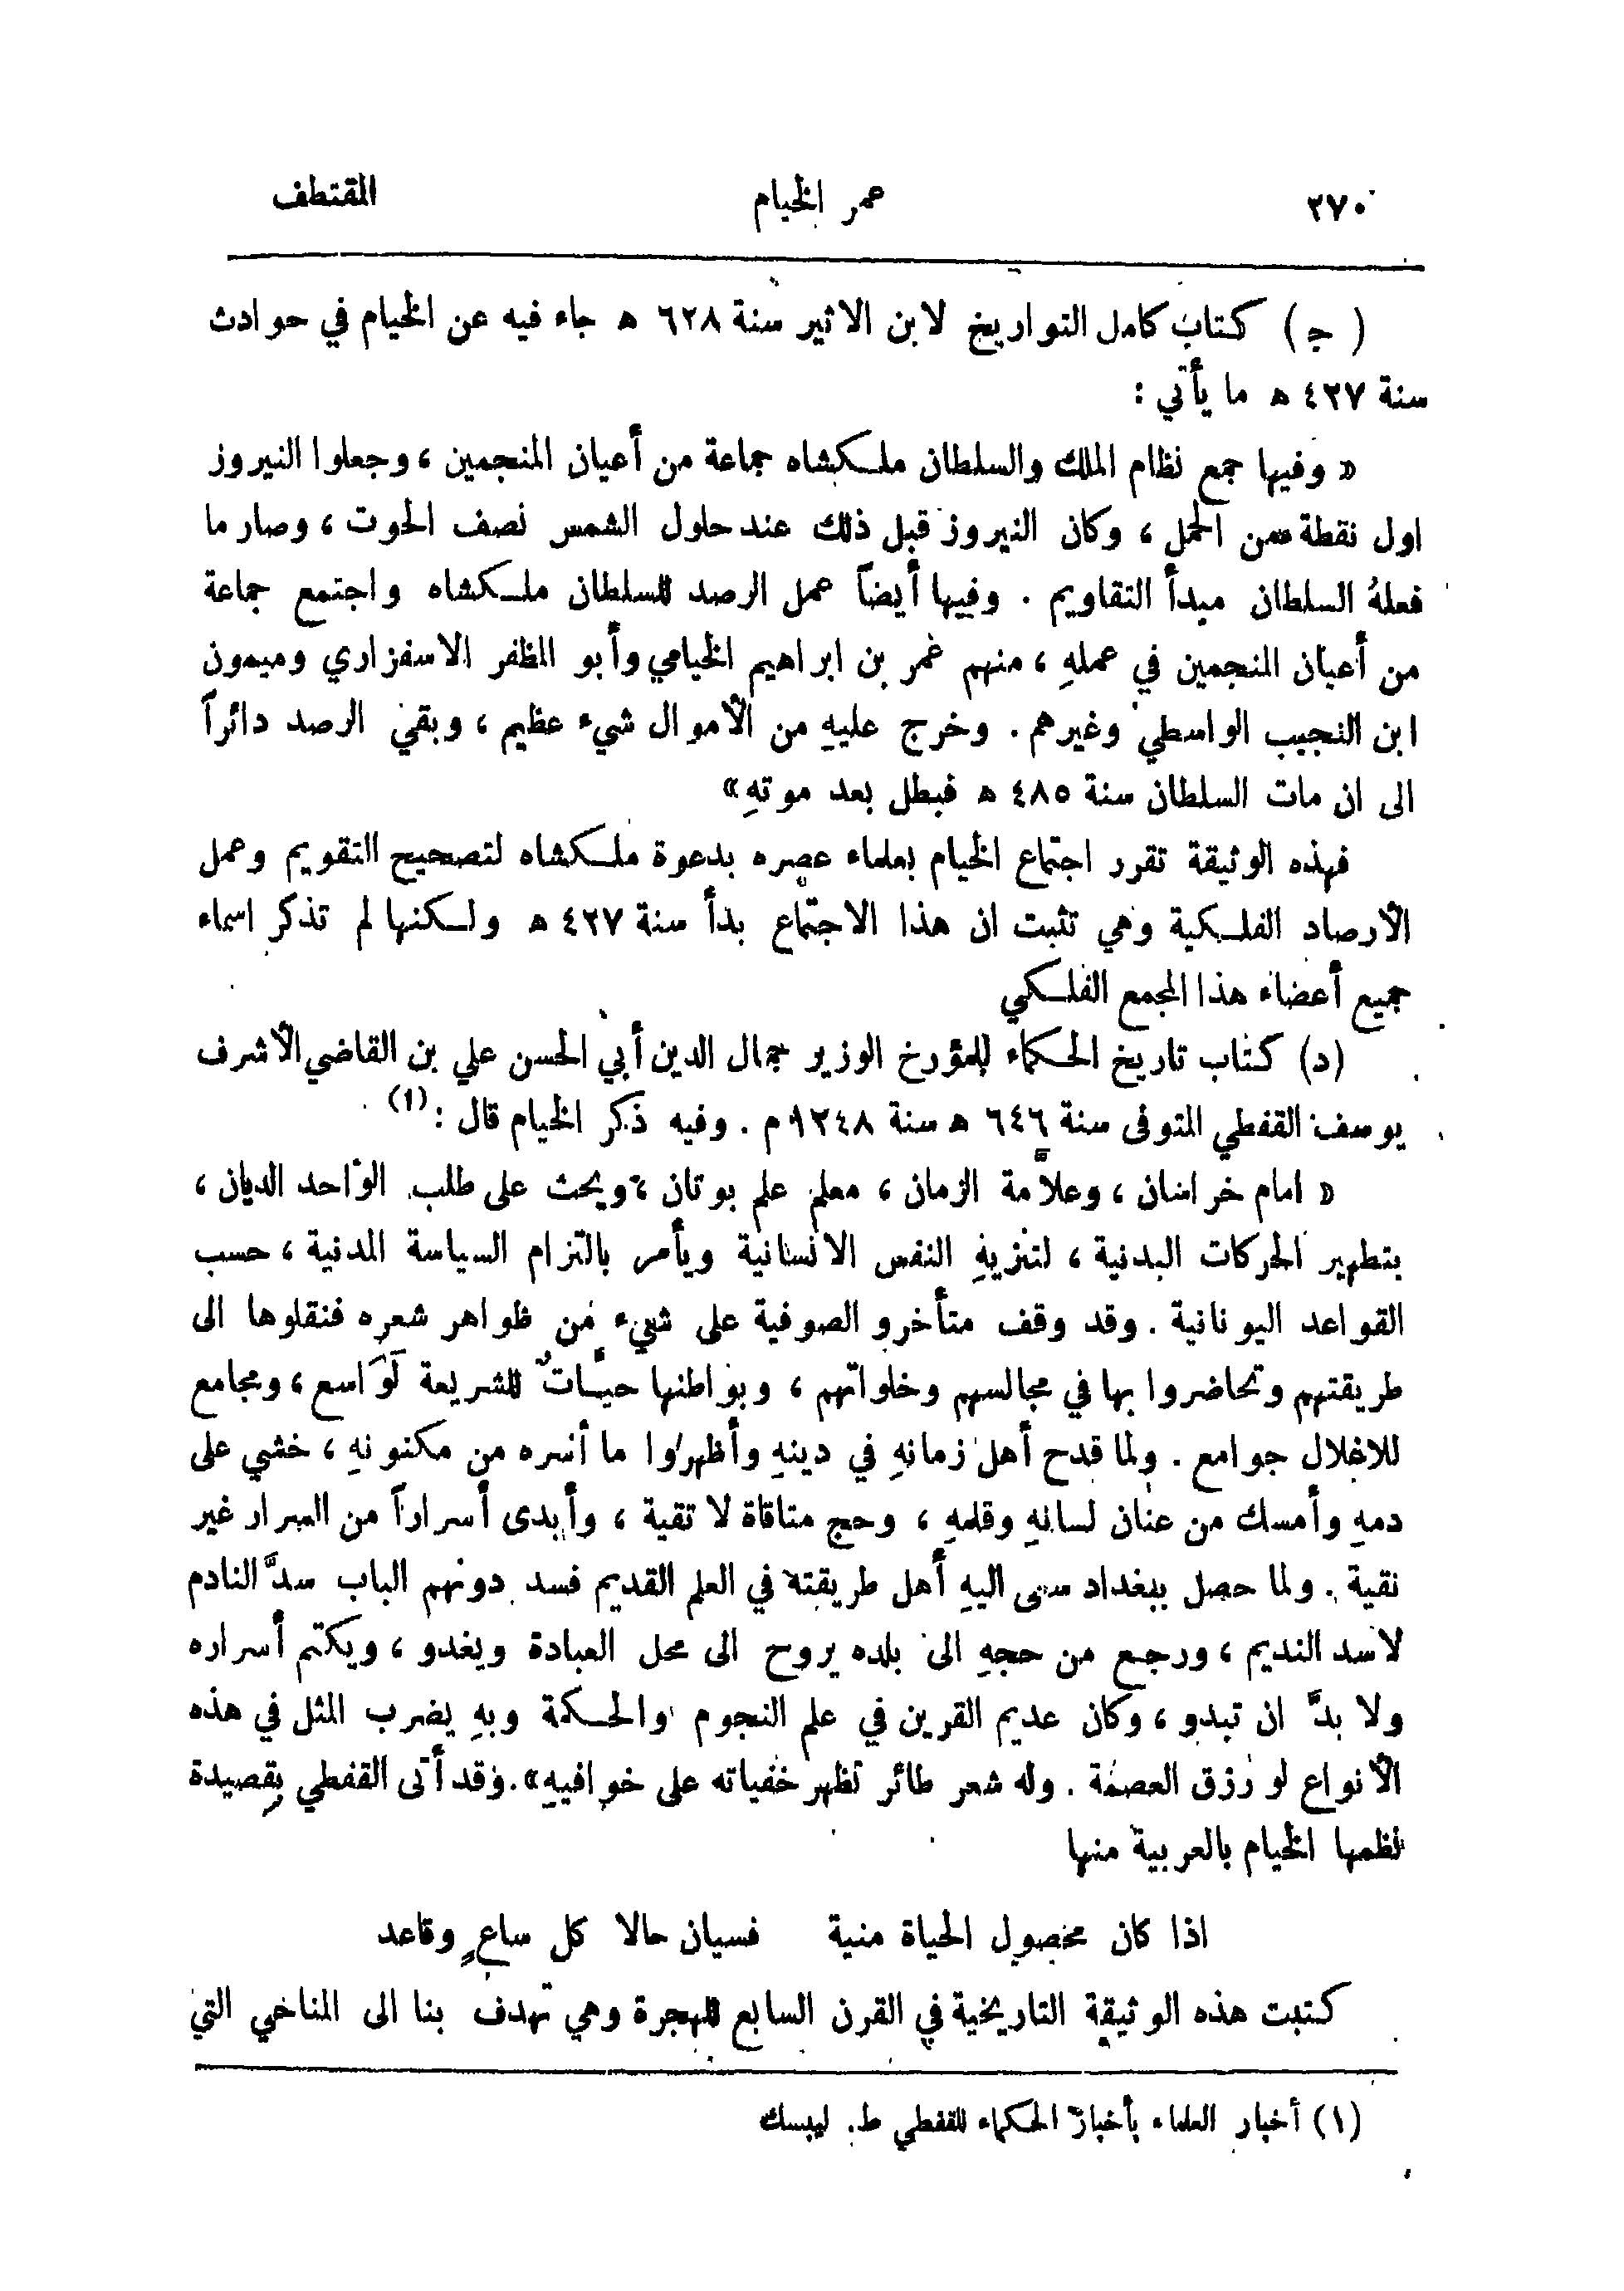 ٢٧٠ عمر الخيام المقتطف
( ج ) كتاب كامل التواريخ لابن الاثير سنة ٦٢٨ ﻫ جاء فيه عن الخيام في حوادث
سنة ٤٢٧ ﻫ ما يأتي :
« وفيها جمع نظام الملك والسلطان ملكشاه جماعة من أعيان المنجمين ، وجعلوا النيروز
اول نقطة من الحمل ، وكان النيروز قبل ذلك عند حلول الشمس نصف الحوت ، وصار ما
فعلهُ السلطان مبدأ التقاويم . وفيها أيضاً عمل الرصد للسلطان ملكشاه واجتمع جماعة
من أعيان المنجمين في عملهِ ، منهم عمر بن ابراهيم الخيامي وأبو المظفر الاسفزاري وميمون
ابن النجيب الواسطي وغيرهم . وخرج عليهِ من الأموال شيء عظيم ، وبقي الرصد دائراً
الى ان مات السلطان سنة ٤٨٥ ﻫ فبطل بعد موتهِ »
فهذه الوثيقة تقرر اجتماع الخيام بعلماء عصره بدعوة ملكشاه لتصحيح التقويم وعمل
الأرصاد الفلكية وهي تثبت ان هذا الاجتماع بدأ سنة ٤٢٧ ﻫ ولكنها لم تذكر اسماء
جميع أعضاء هذا المجمع الفلكي
(د) كتاب تاريخ الحكماء للمؤرخ الوزير جمال الدين أبي الحسن علي بن القاضي الأشرف
يوسف القفطي المتوفى سنة ٦٤٦ ﻫ سنة ١٢٤٨ م . وفيه ذكر الخيام قال : (١)
« امام خراسان ، وعلاَّمة الزمان ، معلم علم يونان ، ويحث على طلب الواحد الديان ،
بتطهير الحركات البدنية ، لتنزيهِ النفس الانسانية ويأمر بالتزام السياسة المدنية ، حسب
القواعد اليونانية . وقد وقف متأخرو الصوفية على شيء من ظواهر شعره فنقلوها الى
طريقتهم وتحاضروا بها في مجالسهم وخلواتهم ، وبواطنها حيَّاتٌ للشريعة لَوَاسع ، ومجامع
للاغلال جوامع . ولما قدح أهل زمانهِ في دينهِ وأظهروا ما أسره من مكنونهِ ، خشي على
دمهِ وأمسك من عنان لسانهِ وقلمهِ ، وحج متاقاة لا تقية ، وأبدى أسراراً من السرار غير
نقية . ولما حصل ببغداد سعى اليهِ أهل طريقته في العلم القديم فسد دونهم الباب سدَّ النادم
لا سد النديم ، ورجع من حجهِ الى بلده يروح الى محل العبادة ويغدو ، ويكتم أسراره
ولا بدَّ ان تبدو ، وكان عديم القرين في علم النجوم والحكمة وبهِ يضرب المثل في هذه
الأنواع لو رزق العصمة . وله شعر طائر تظهر خفياته على خوافيهِ ». وقد أتى القفطي بقصيدة
نظمها الخيام بالعربية منها
اذا كان محصول الحياة منية فسيان حالا كل ساعٍ وقاعد
كتبت هذه الوثيقة التاريخية في القرن السابع للهجرة وهي تهدف بنا الى المناحي التي
(١) أخبار العلماء بأخبار الحكماء للقفطي ط. ليبسك